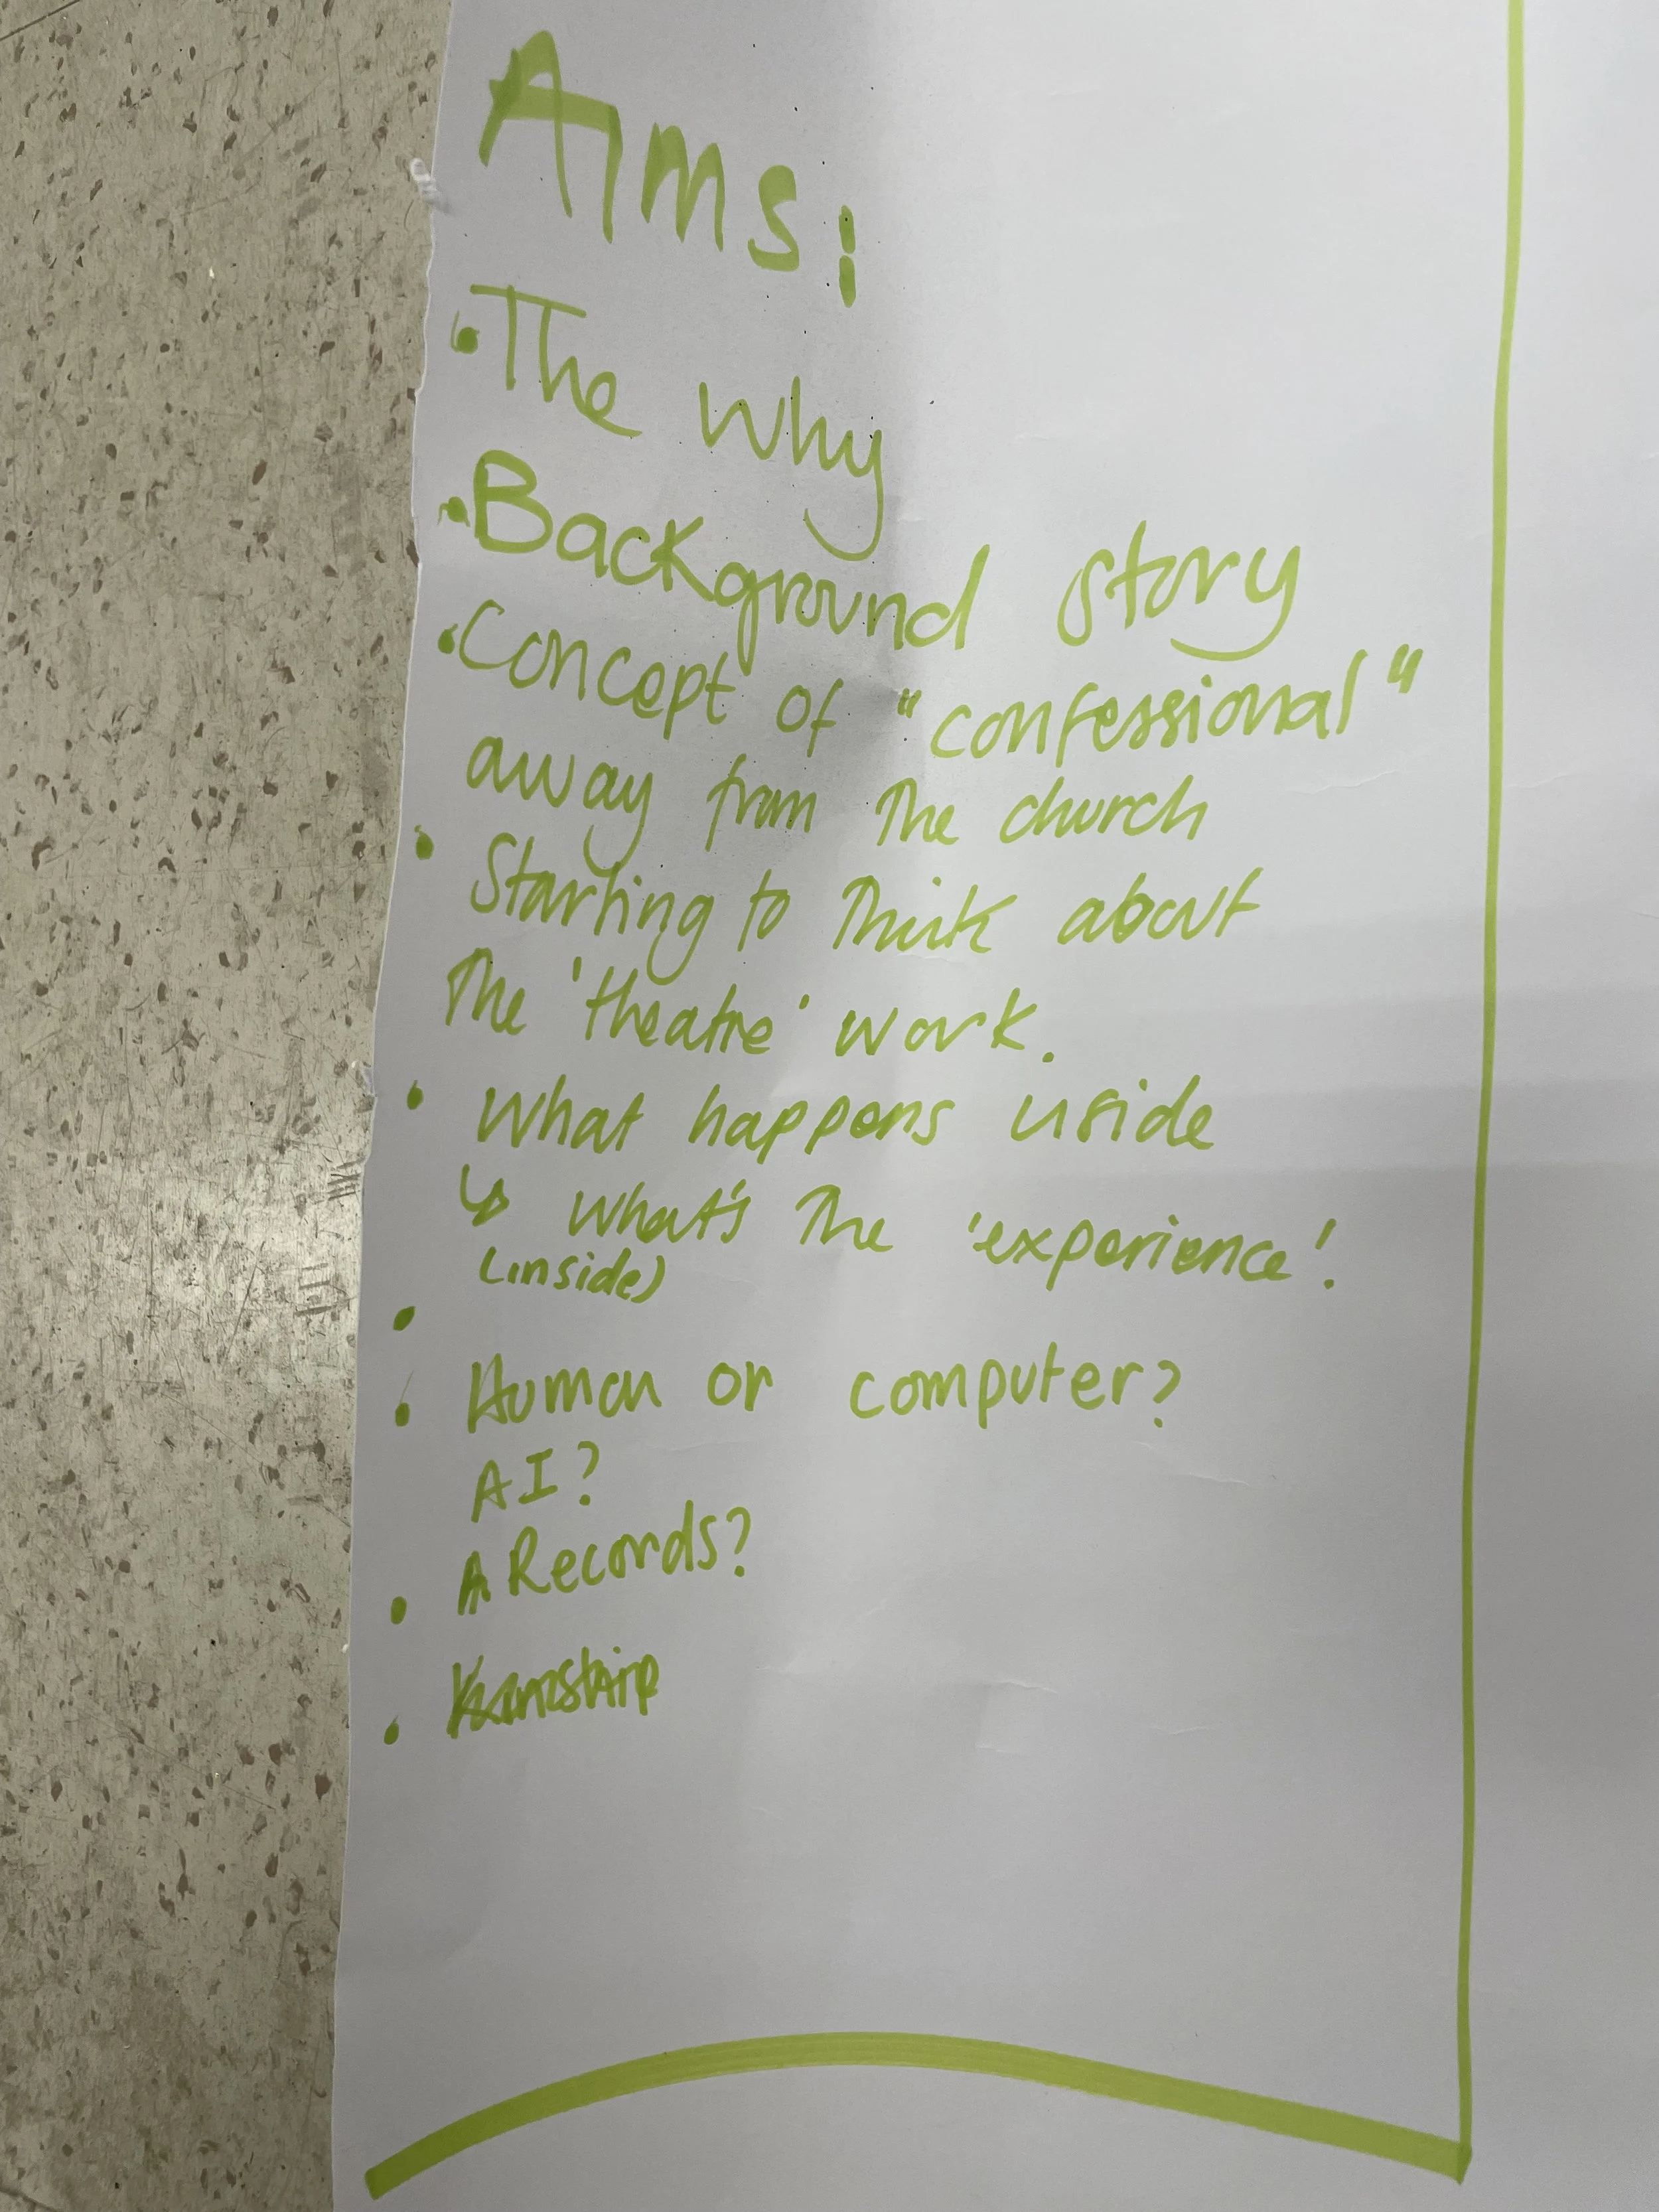 Aims:
• The why
• Background story
• Concept of "confessional"
away from the church
• Starting to think about
the 'theatre' work.
• What happens inside
↳ What's the 'experience'!
(inside)
•
• Human or computer?
AI?
• Records?
•